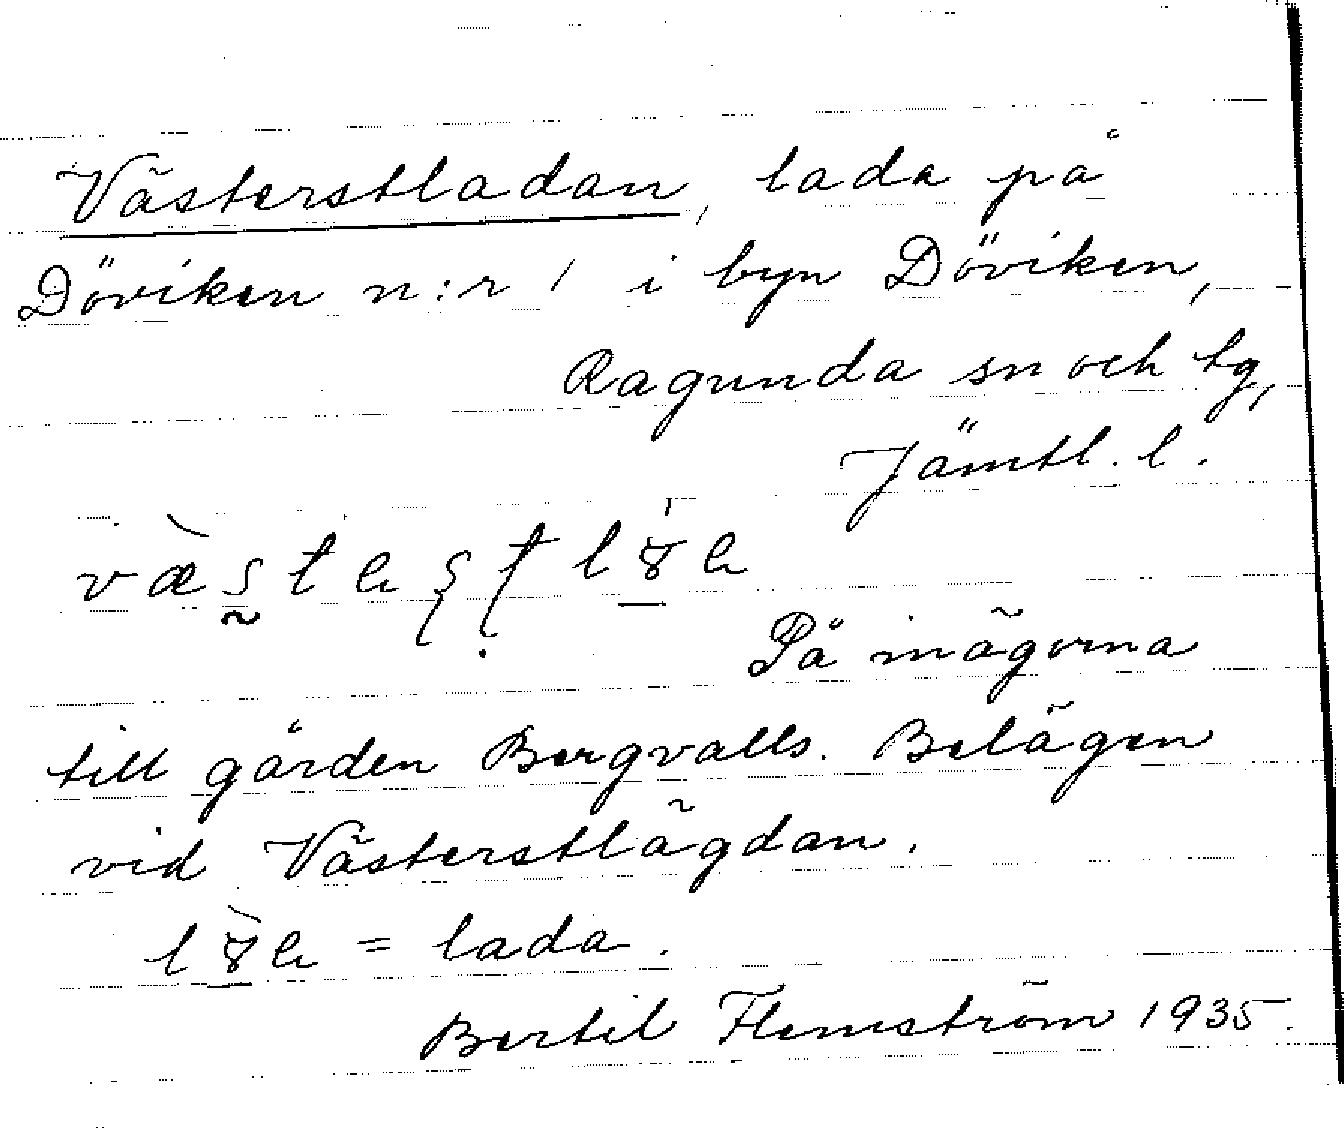 Västerstladan, lada på
Döviken n:r 1 i byn Döviken,
Ragunda sn och tg,
Jämtl. l.
På inägorna
till gården Bergvalls. Belägen
vid Västerstlägdan.
= lada.
Bertil Flemström 1935.